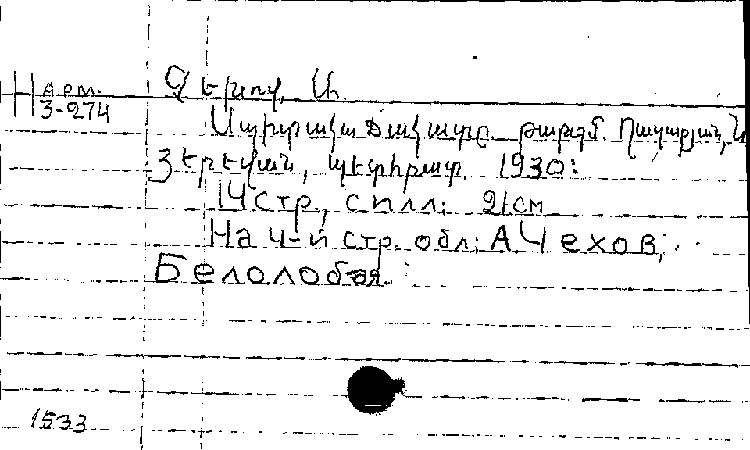 Н арм.
3-274
Չեխով, Ա.
Սպիտակա Ճակատը. թարգմ. Ղազարյան, Ն
Յերեվան, պետհրատ. 1930:
14 стр, с илл; 21см
На 4-й стр. обл: А Чехов;
Белолобая.
1533